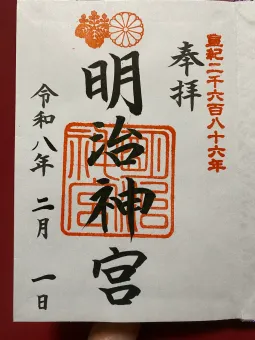 皇紀二千六百八十六年
奉拝
明治神宮
令和八年 二月 一日